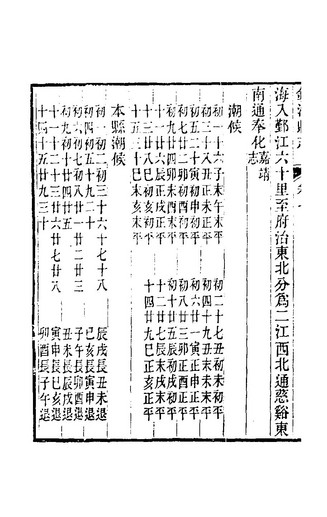 海入鄞江六十里至府治東北分爲二江西北通慈谿東
南通奉化嘉靖志
潮候
初一十六子末午末平　初二十七丑初未初平
初三十八丑正未正平　初四十九丑末未末平
初五二十寅初申初平　初六廿一寅正申正平
初七廿二卯初酉初平　初八廿三卯正酉正平
初九廿四卯末酉末平　初十廿五辰初戌初平
十一廿六辰正戌正平　十二廿七辰末戌末平
十三廿八巳初亥初平　十四廿九巳正亥正平
十五三十
本縣潮候
初一初二初三十六十七十八　辰戌長丑未退
初四初五十九二十　巳亥長寅申退
初六初七初八廿一廿二廿三　子午長卯酉退
初九初十廿四廿五　丑未長辰戌退
十一十二十三廿六廿七廿八　寅申長巳亥退
十四十五廿九三十　卯酉長子午退